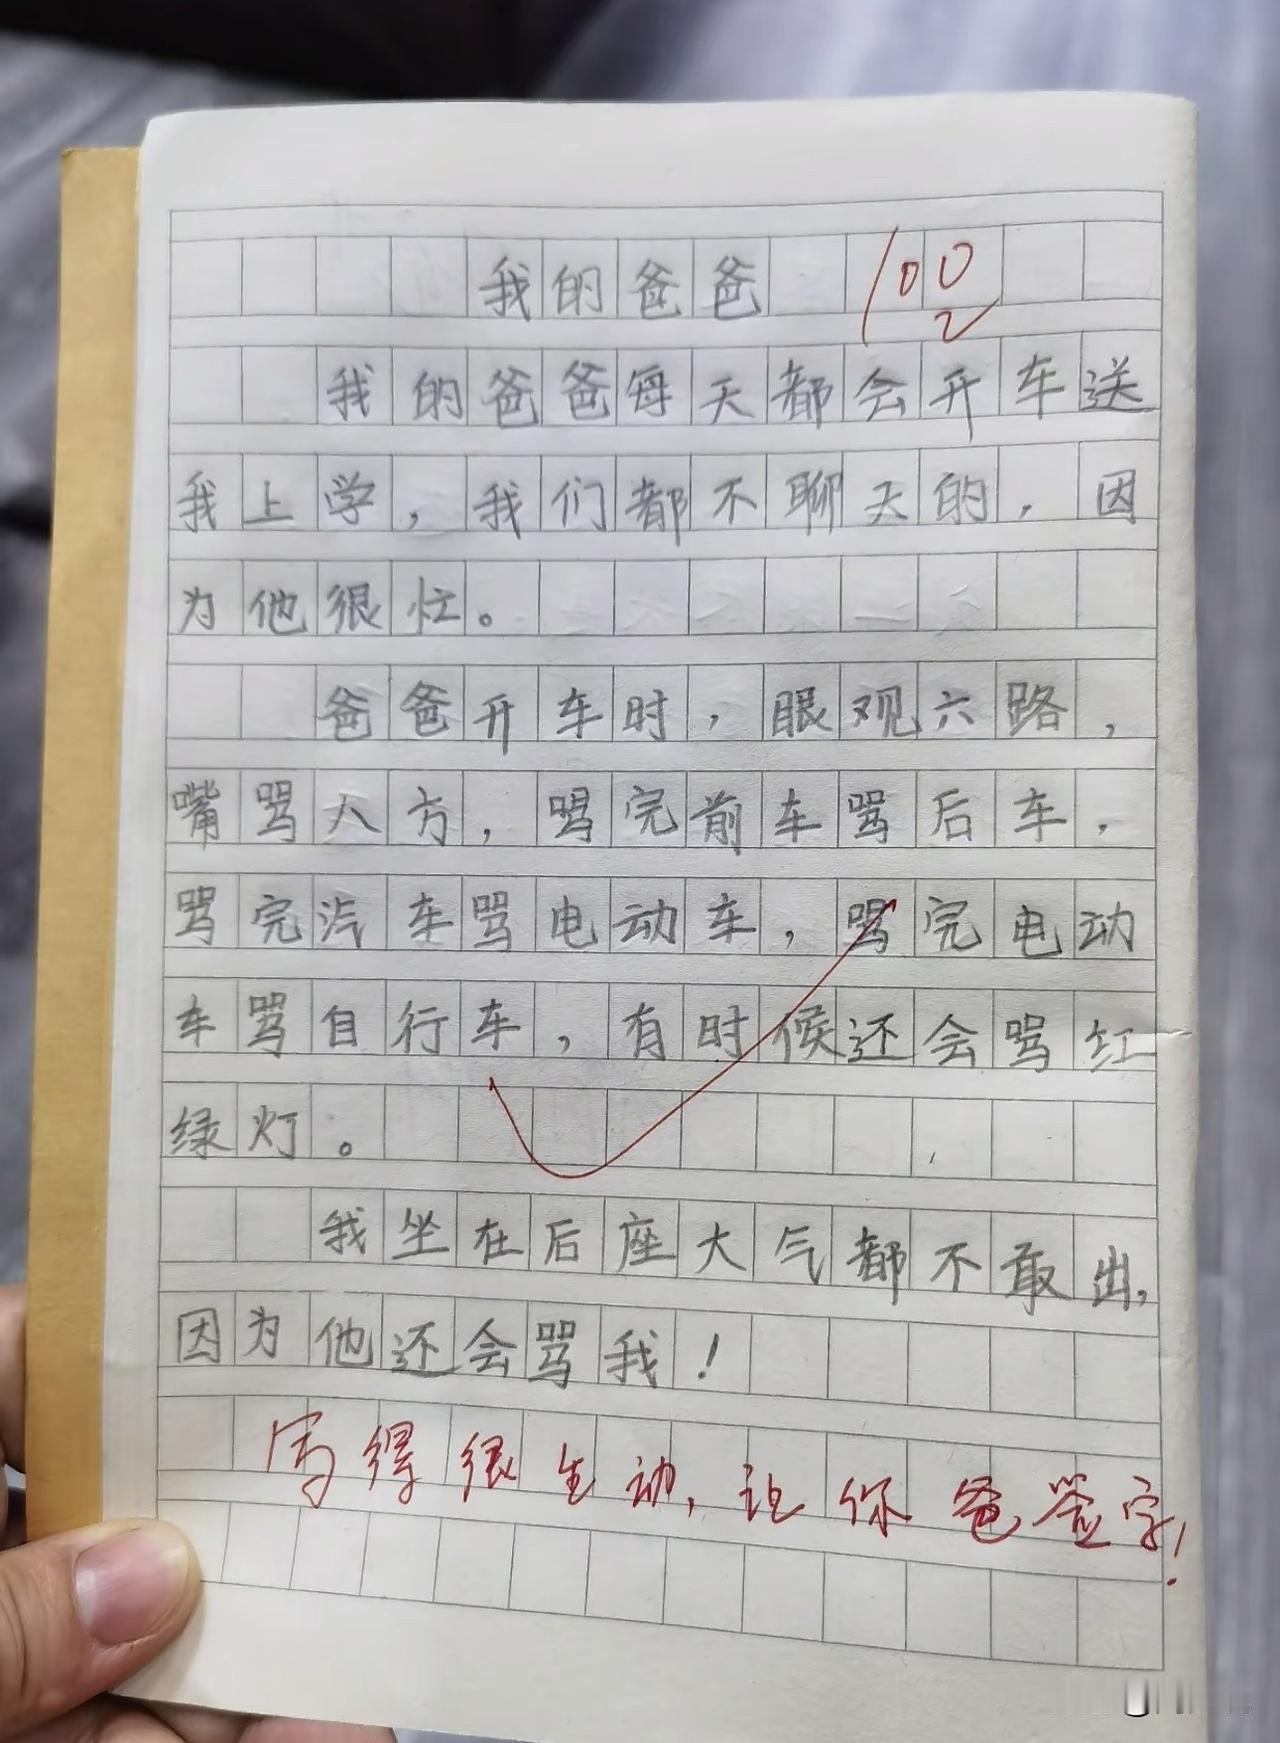 我的爸爸 100
我的爸爸每天都会开车送
我上学，我们都不聊天的，因
为他很忙。
爸爸开车时，眼观六路，
嘴骂八方，骂完前车骂后车，
骂完汽车骂电动车，骂完电动
车骂自行车，有时候还会骂红
绿灯。
我坐在后座大气都不敢出，
因为他还会骂我！
写得很生动，让你爸签字！